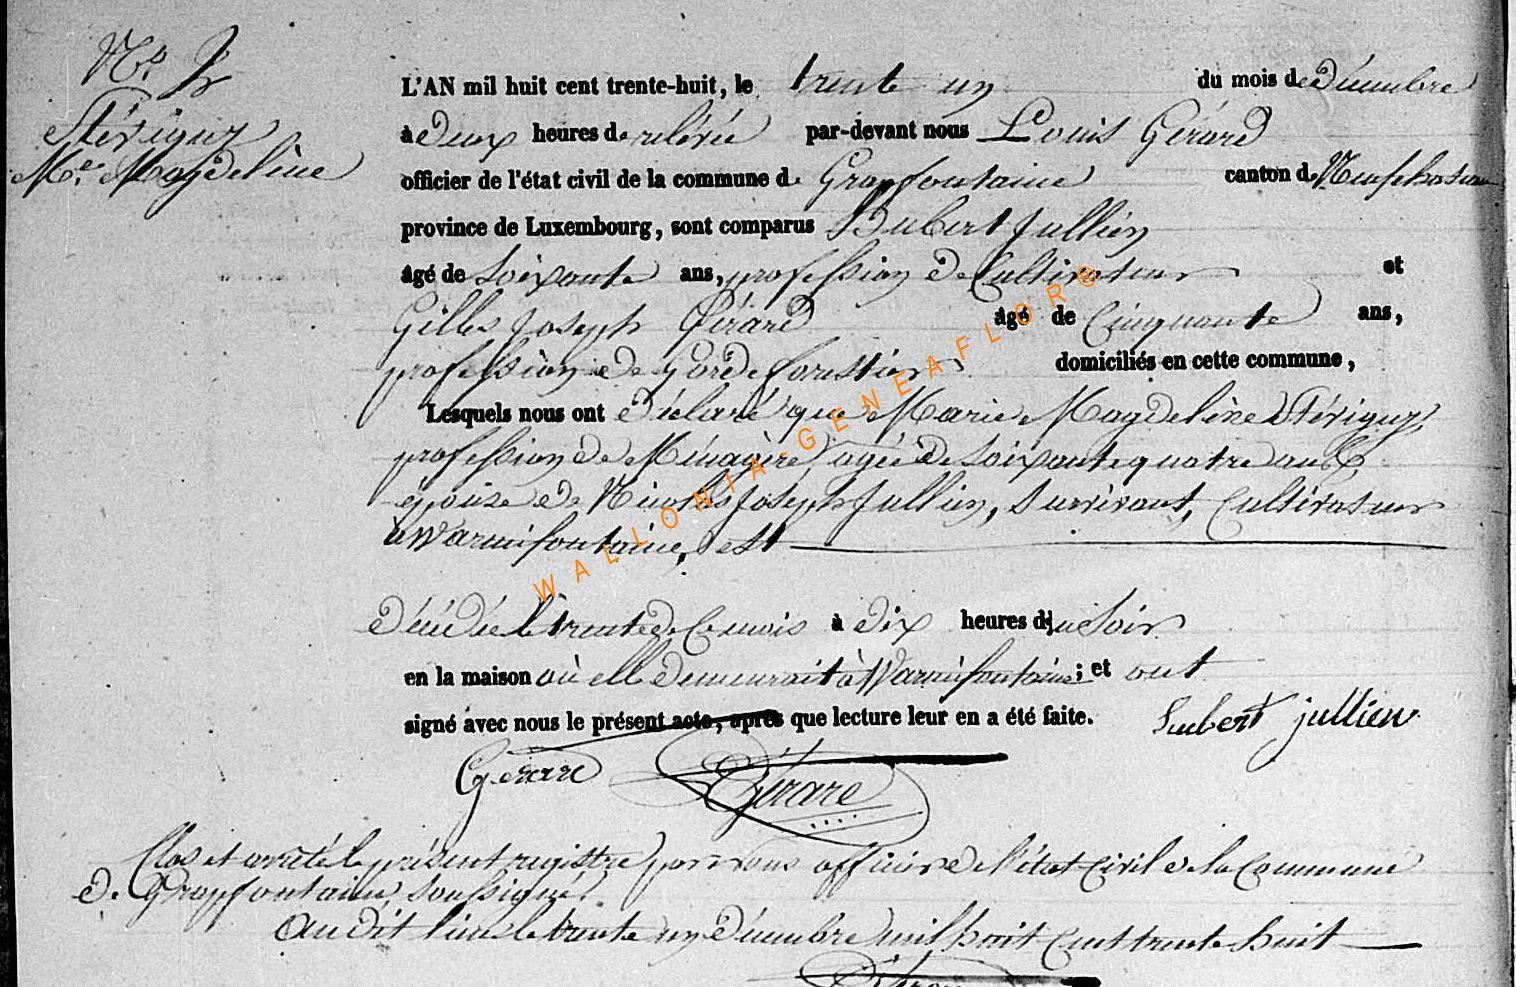 Stévigny
Me. Magdeleine
L'AN mil huit cent trente-huit, le trente un du mois de Décembre
à Deux heures de relévée par-devant nous Louis Gérard
officier de l'état civil de la commune de Grapfontaine canton de Neufchateau
province de Luxembourg, sont comparus Hubert Jullien
âgé de Soixante ans, profession de Cultivateur et
Gilles Joseph Gérard âgé de Cinquante ans,
profession de Garde forestier domiciliés en cette commune,
Lesquels nous ont déclaré que Marie Magdeleine Stévigny,
profession de Ménagère, agée de Soixante quatre ans
épouse de Nicolas Joseph Jullien, Survivant, Cultivateur
à Warmifontaine, est
Décédée le trente de Ce mois à Dix heures du Soir
en la maison où elle demeurait à Warmifontaine; et ont
signé avec nous le présent acte, après que lecture leur en a été faite.
hubert jullien
Gérard Gérard
Clos et arrêté le présent registre par nous officier de l'état Civil de la Commune
de Grapfontaine, Soussigné.
Au dit lieu le trente un Décembre mil huit Cent trente huit
WALLONIA-GENEAFL.ORG